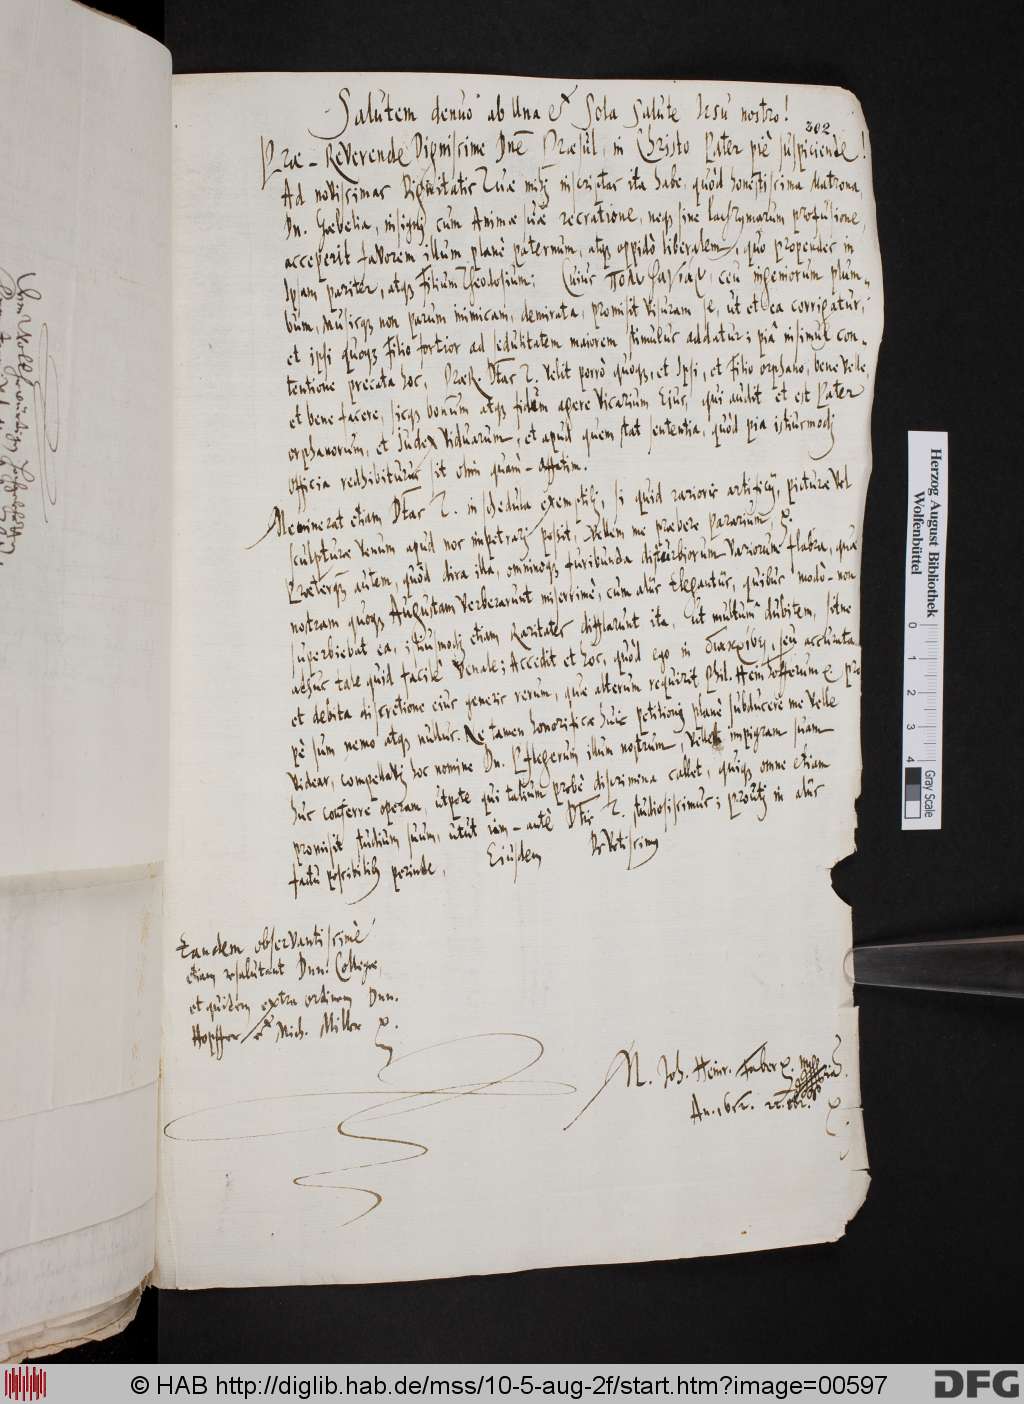 Salutem denuò ab Una et Sola Salute Iesu nostro!
302
Præ-Reverende Dignissime Dne Præsul, in Christo Pater piè suspiciende!
Ad novissimas Dignitatis Tuæ mihi inscriptas ita habe, quòd honestissima Matrona,
Dn. Gœbelia, insigni cum Animæ suæ recreatione, neque sine lachrymarum profusione,
acceperit favorem illum planè paternum, atque oppidò liberalem, quo propendes in
Ipsam pariter, atque Filium Theodosium; Cuius ceu ingeniorum plum-
bum, Musisque non parum inimicam, demirata, promisit visuram se, ut et ea corrigatur,
et ipsi quoque filio fortior ad sedulitatem maiorem stimulus addatur; piâ nisimul con-
tentione precata hoc, Dtas T. velit porrò quoque, et Ipsi, et filio orphano, bene velle,
et bene facere, sicque bonum atque fidum agere Vicarium Ejus, qui audit et est Pater
orphanorum, et Iudex Viduarum, et apud quem stat sententia, quòd pia istiusmodi
officia redhibiturus sit olim quàm-affatim.
Meminerat etiam Dtas T. in schedula exemptili, si quid rarioris artificij, picturæ vel
sculpturæ venum apud nos impetrari possit, Vellem me præbere pararium.
Præterquam autem, quòd dira illa, omninoque furibunda disturbiorum variorum flabra, quæ
nostram quoque Augustam verberarunt miserrimè, cum alias Elegantias, quibus modò-non
superbiebat ea, istiusmodi etiam Raritates difflarunt ita, ut multum dubitem, sitne
adhuc tale quid facilè venale; Accedit et hoc, quòd ego in διακρίσει, seu acclinata
et debita discretione eius generis rerum, quæ alterum requirit Phil. Heinhofferum pro
pè sum nemo atque nullus. Ne tamen honorificæ huic petitioni planè subducere me velle
videar, compellavi hoc nomine Dn. Pflegerum illum nostrum, vellet impigram suam
huc conferre operam, utpote qui talium probè discrimina callet, quique omne etiam
promisit studium suum, utut iam-antè Dtis T. studiosissimus; prouti in alijs
factu possibilibus perinde, Eiusdem
tandem observantissimè
etiam resalutant Dnn. Collegæ,
et quidem extra ordinem Dnn.
Hopffer et Mich. Miller
M. Joh. Heinr. Faber
An. 1652.
Herzog August Bibliothek
Wolfenbüttel
0 1 2 3 4
Gray Scale
© HAB http://diglib.hab.de/mss/10-5-aug-2f/start.htm?image=00597
DFG